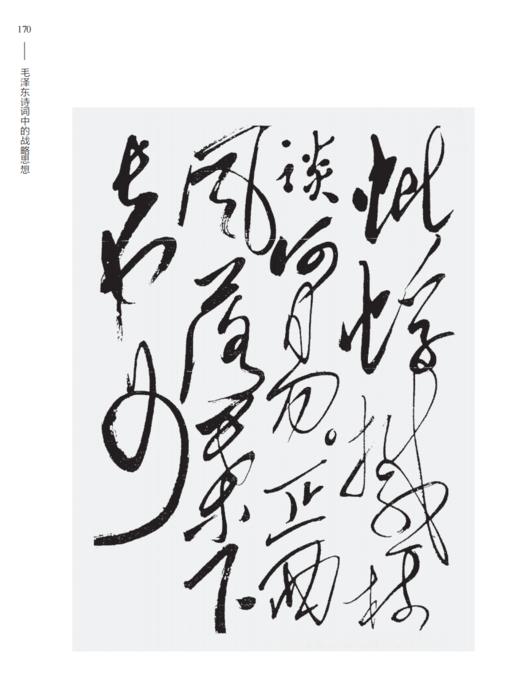 170
毛泽东诗词中的战略思想
蚍蜉撼树
谈何易。正西
风落葉下
长安